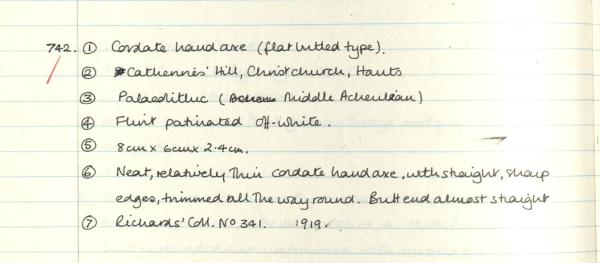 742. ① Cordate handaxe (flat butted type).
② Catherines' Hill, Christchurch, Hants
③ Palaeolithic (Middle Acheulian)
④ Flint patinated off-white.
⑤ 8cm x 6cm x 2.4cm.
⑥ Neat, relatively thin cordate handaxe, with straight, sharp
edges, trimmed all the way round. Butt end almost straight
⑦ Richards' Coll. No 341. 1919.